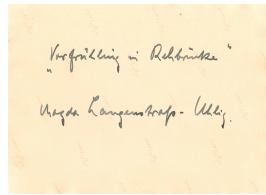 „Vorfrühling in Rehbrücke“
Magda Langenstraß-Uhlig.